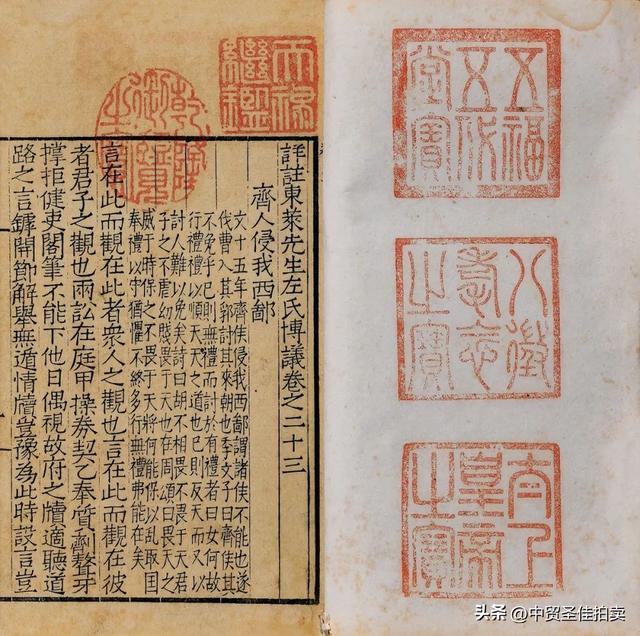 五福五代堂寶
八徵耄念之寶
太上皇帝之寶
天祿繼鑑
乾隆御覽之寶
詳註東萊先生左氏博議卷之二十三
齊人侵我西鄙
文十五年齊侯侵我西鄙謂諸侯不能也遂
伐曹入其郛討其來朝也季文子曰齊侯其
不免乎已則無禮而討於有禮者曰女何故
行禮禮以順天天之道也已則反天而又以
討人難以免矣詩曰胡不相畏不畏于天君
子之不虐幼賤畏于天也在周頌曰畏天之
威于時保之不畏于天將何能保以亂取国
奉禮以守猶懼不終多行無禮弗能在矣
言在此而觀在此者衆人之觀也言在此而觀在彼
者君子之觀也兩訟在庭甲操券契乙奉質劑謷牙
撐拒健吏閣筆不能下他日偶視故府之牘適聽道
路之言鏬開節解舉無遁情牘豈豫為此時設言豈
头条 @中贸圣佳拍卖